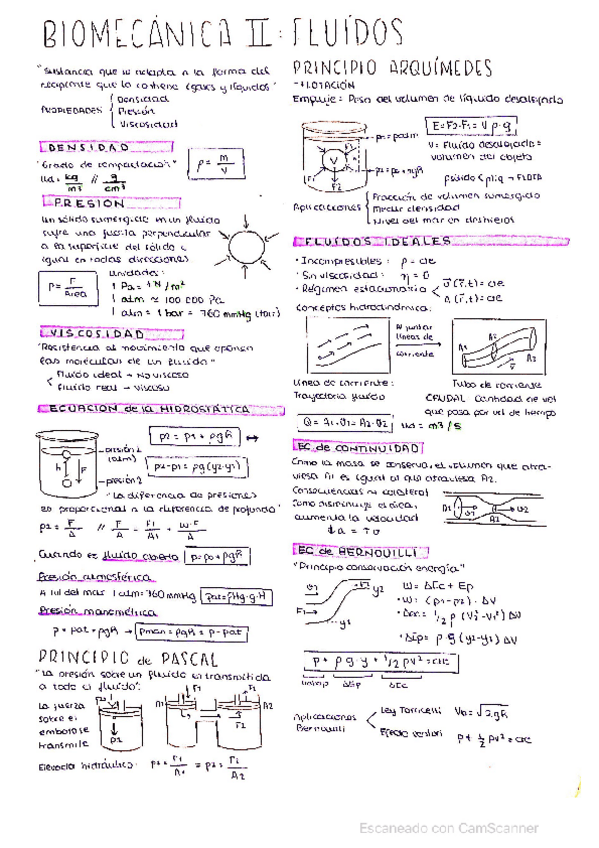 BIOMECÁNICA II: FLUÍDOS
"Sustancia que se adapta a la forma del
recipiente que lo contiene (gases y líquidos)"
PROPIEDADES
Densidad
Presión
Viscosidad
DENSIDAD
"Grado de compactación"
ρ = m/V
ud = kg/m³ // g/cm³
PRESIÓN
Un sólido sumergido en un fluido
sufre una fuerza perpendicular
a la superficie del sólido e
igual en todas direcciones
P = F/Área
unidades:
1 Pa = 1 N/m²
1 atm ≈ 100 000 Pa
1 atm = 1 bar = 760 mmHg (torr)
VISCOSIDAD
"Resistencia al movimiento que oponen
las moléculas de un fluido"
Fluido ideal → No viscoso
Fluido real → Viscoso
ECUACIÓN de la HIDROSTÁTICA
presión 1
(atm)
h
F
presión 2
p2 = p1 + ρgh
p2-p1 = ρg(y2-y1)
"La diferencia de presiones
es proporcional a la diferencia de profundidad"
Cuando es fluido abierto p = p0 + ρgh
Presión atmosférica
A nivel del mar 1 atm = 760 mmHg
Presión manométrica
p = pat + ρgh → pman = ρgh = p - pat
PRINCIPIO de PASCAL
"La presión sobre un fluido es transmitida
a todo el fluido".
La fuerza
sobre el
embolo se
transmite
Elevador hidráulico: p1 = F1/A1 = p2 = F2/A2
PRINCIPIO ARQUÍMEDES
→ FLOTACIÓN
Empuje = Peso del volumen de líquido desalojado
V
F1
F2
E = F2-F1 = V ρ·g
V = Fluido desalojado =
volumen del objeto
ρsólido < ρliq → FLOTA
Aplicaciones
Fracción de volumen sumergido
Medir densidad
Nivel del mar en deshielos
FLUÍDOS IDEALES
· Incompresibles: ρ = cte
· Sin viscosidad: η = 0
· Régimen estacionario
Conceptos hidrodinámica:
Al juntar
líneas de
corriente
A1
A2
Línea de corriente:
Trayectoria fluido
Tubo de corriente
CAUDAL Cantidad de vol
que pasa por ud de tiempo
Q = A1·v1 = A2·v2
ud = m³/s
EC de CONTINUIDAD
Como la masa se conserva, el volumen que atra-
viesa A1 es igual al que atraviesa A2.
Como disminuye el área,
aumenta la velocidad
A1
v1
A2
v2
EC de BERNOUILLI
"Principio conservación energía"
v1
F1
y1
v2
y2
· W = ΔEc + Ep
· W = (p1-p2) · ΔV
· ΔEc = 1/2 ρ (v2²-v1²) ΔV
· ΔEp = ρ·g (y2-y1) ΔV
p + ρ·g·y + 1/2 ρv² = cte
ΔEp
ΔEc
Aplicaciones
Bernouilli
Ley Torricelli
Efecto venturi
p + 1/2 ρv² = cte
Escaneado con CamScanner